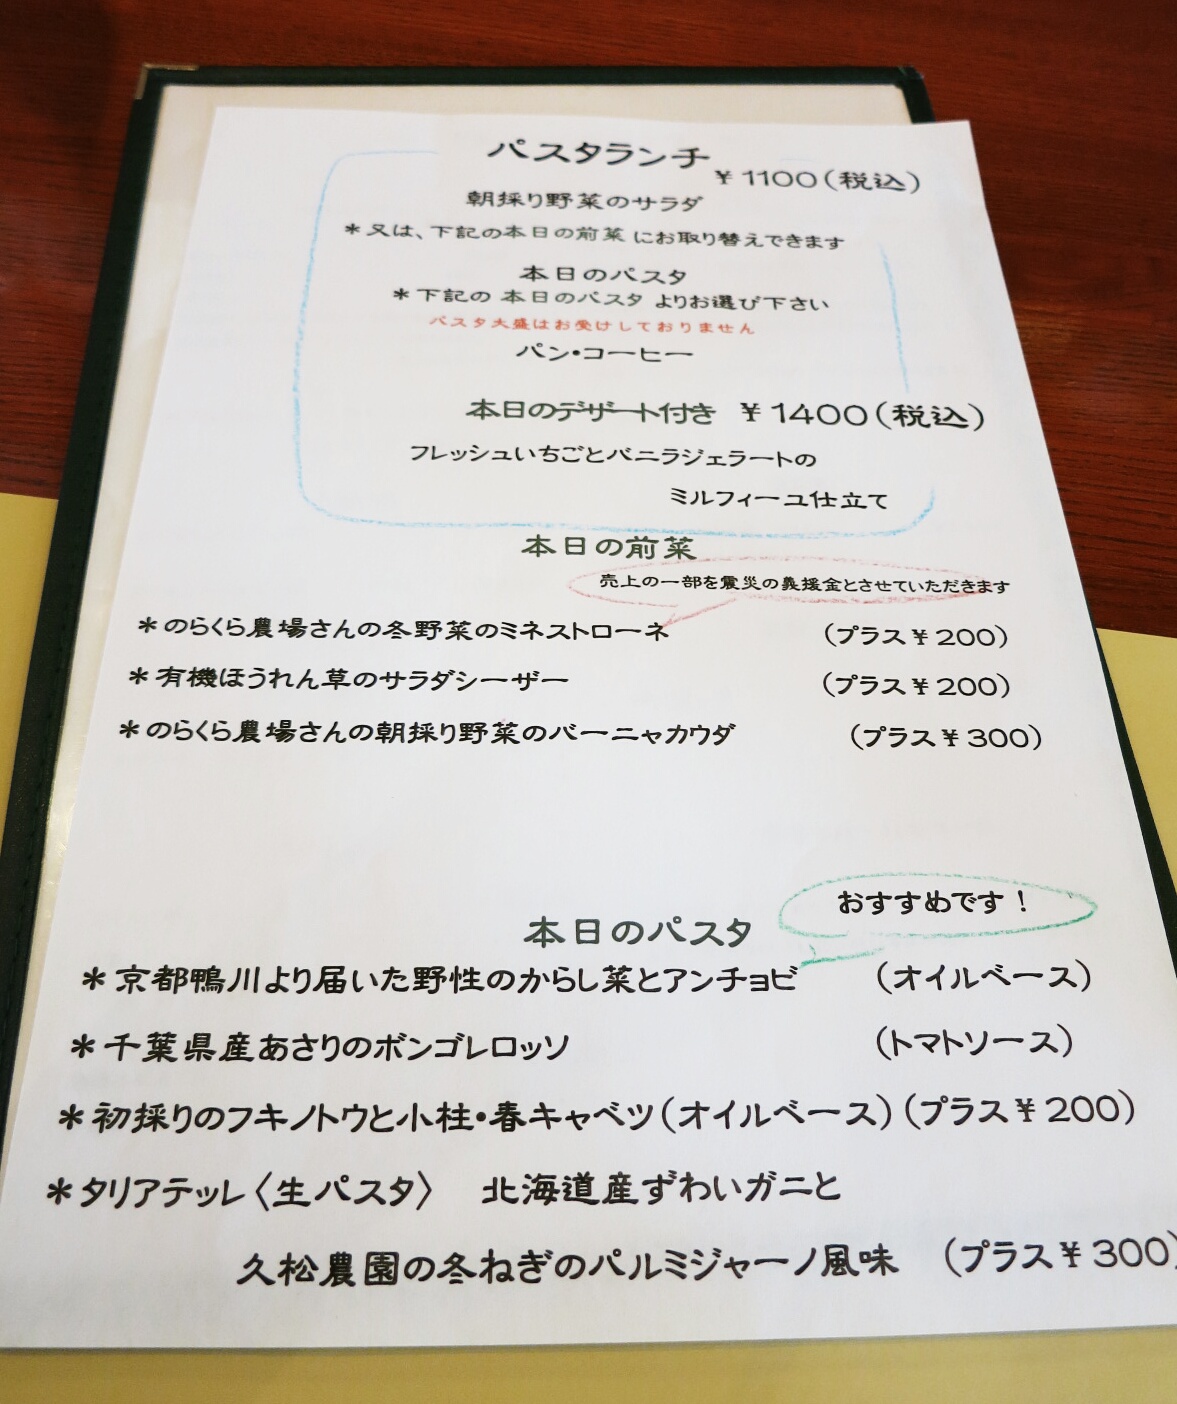 パスタランチ
¥1100(税込)
朝採り野菜のサラダ
*又は、下記の本日の前菜 にお取り替えできます
本日のパスタ
*下記の 本日のパスタ よりお選び下さい
パスタ大盛はお受けしておりません
パン・コーヒー
本日のデザート付き ¥1400(税込)
フレッシュいちごとバニラジェラートの
ミルフィーユ仕立て
本日の前菜
売上の一部を震災の義援金とさせていただきます
*のらくら農場さんの冬野菜のミネストローネ (プラス¥200)
*有機ほうれん草のサラダシーザー (プラス¥200)
*のらくら農場さんの朝採り野菜のバーニャカウダ (プラス¥300)
おすすめです!
本日のパスタ
*京都鴨川より届いた野性のからし菜とアンチョビ (オイルベース)
*千葉県産あさりのボンゴレロッソ (トマトソース)
*初採りのフキノトウと小柱・春キャベツ(オイルベース)(プラス¥200)
*タリアテッレ〈生パスタ〉 北海道産ずわいガニと
久松農園の冬ねぎのパルミジャーノ風味 (プラス¥300)